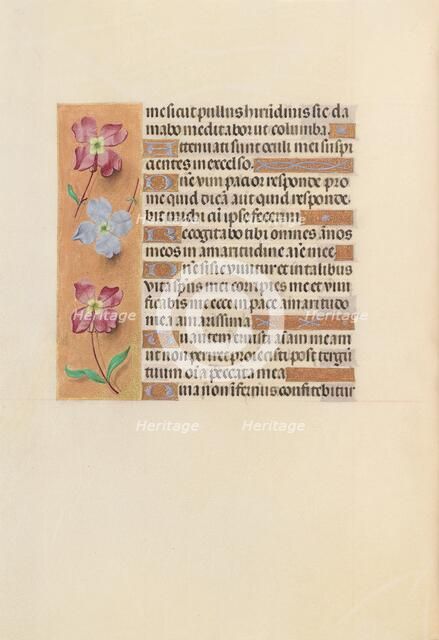 me sicut pullus hirūdinis sic cla
mabo meditabor ut columba.
Attenuati sunt oculi mei suspi
cientes in excelso.
Dn̄e vim patior responde pro
me quid dicā aut quid responde
bit michi cū ipse fecerim
Recogitabo tibi omnes ānos
meos in amaritudine aīe mee
Dn̄e si sic vivitur et in talibus
vita sp̄us mei corripies me et vivi
ficabis me ecce in pace amaritudo
mea amarissima
Tu autem eruisti aīam meam
ut non periret proiecisti post tergū
tuum oīa peccata mea
Quia non infernus confitebitur
Heritage
Heritage
Heritage
Heritage
Heritage
Heritage